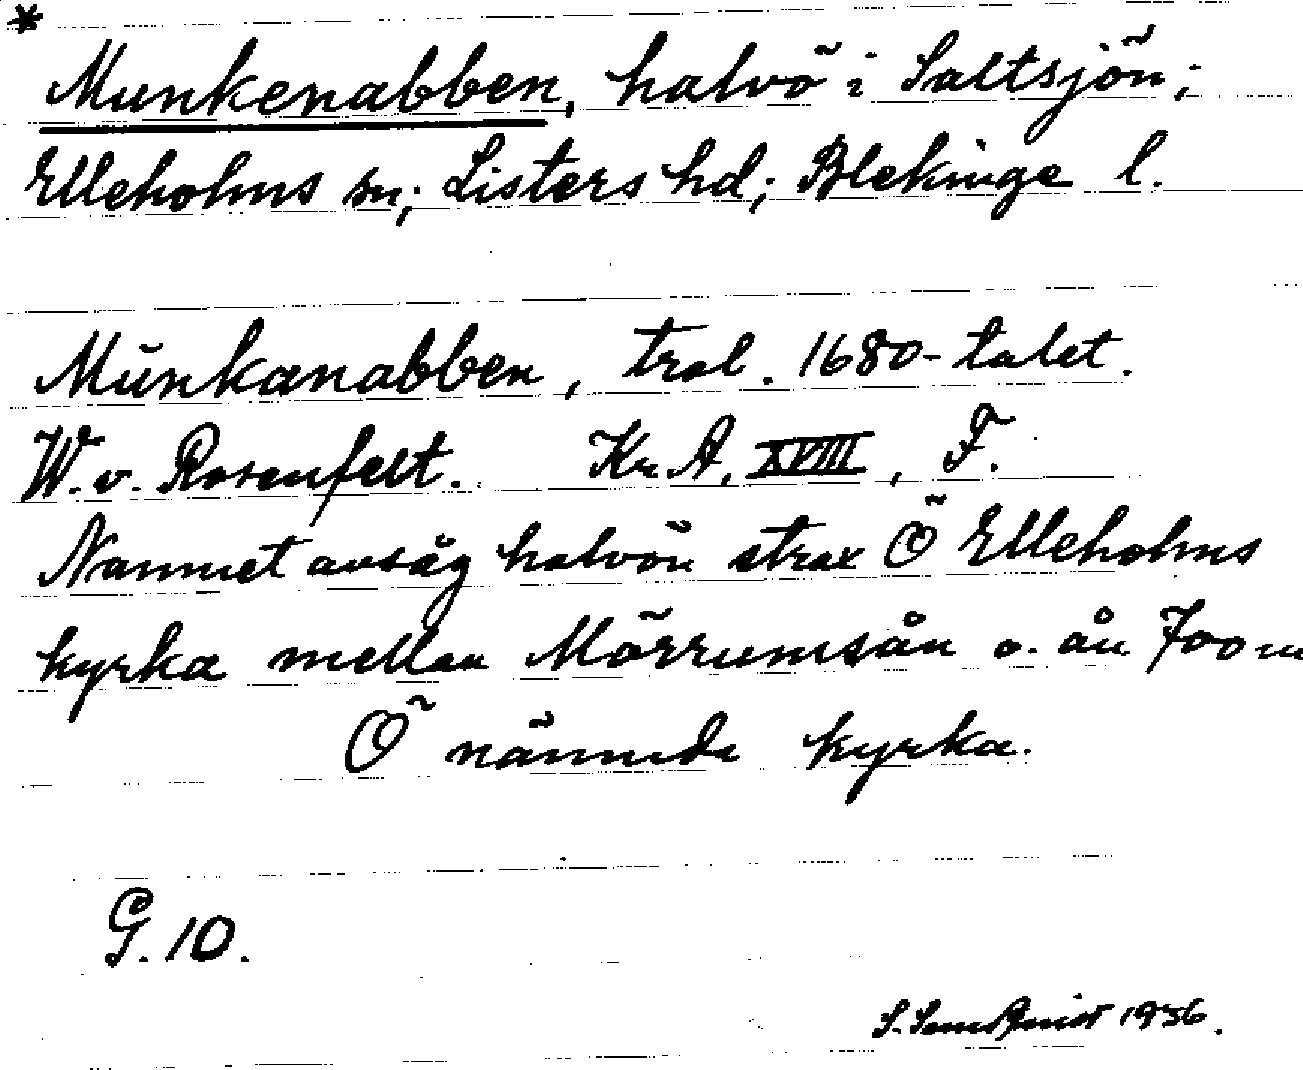 *
Munkenabben, halvö i Saltsjön;
Elleholms sn; Listers hd; Blekinge l.
Munkanabben, trol. 1680-talet.
W. v. Rosenfelt. Kr A, XVIII, F.
Namnet avsåg halvön strax Ö Elleholms
kyrka mellan Mörrumsån o. ån 700 m
Ö nämnda kyrka.
G. 10.
S. 1956.